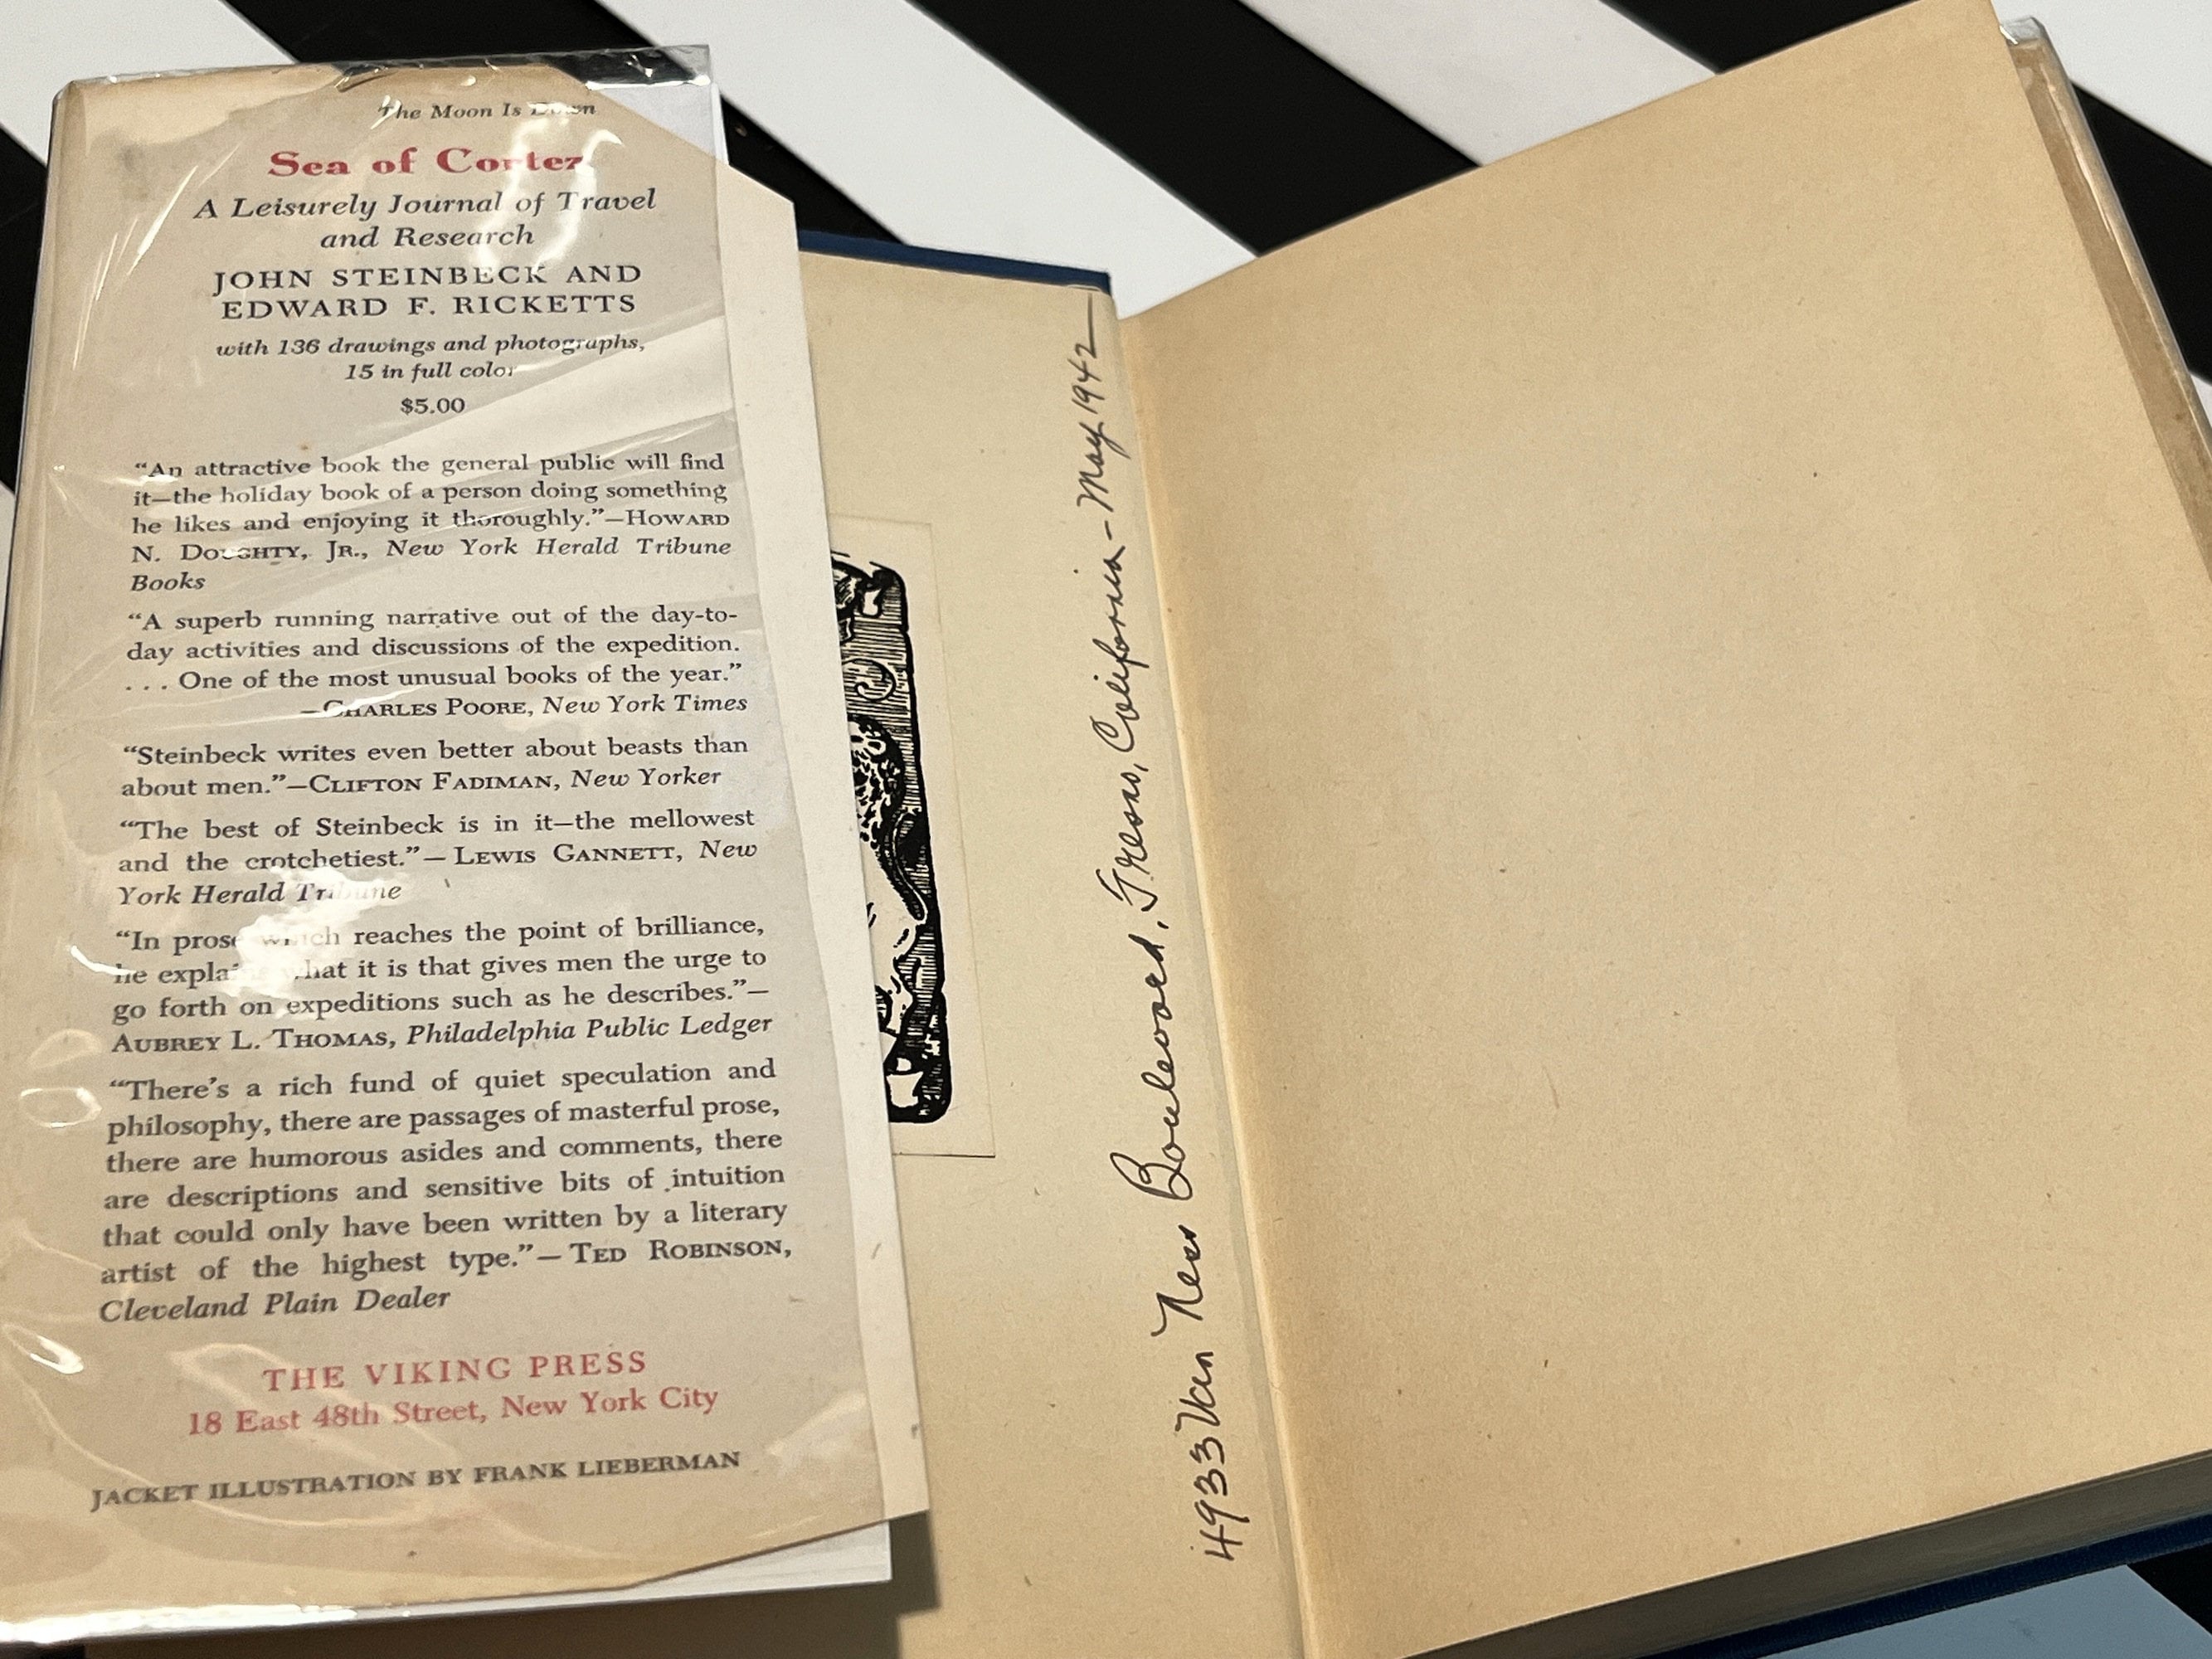 The Moon Is Down
Sea of Cortez
A Leisurely Journal of Travel
and Research
JOHN STEINBECK AND
EDWARD F. RICKETTS
with 136 drawings and photographs,
15 in full color
$5.00
“An attractive book the general public will find
it—the holiday book of a person doing something
he likes and enjoying it thoroughly.”—HOWARD
N. DOUGHTY, JR., New York Herald Tribune
Books
“A superb running narrative out of the day-to-
day activities and discussions of the expedition.
. . . One of the most unusual books of the year.”
—CHARLES POORE, New York Times
“Steinbeck writes even better about beasts than
about men.”—CLIFTON FADIMAN, New Yorker
“The best of Steinbeck is in it—the mellowest
and the crotchetiest.”—LEWIS GANNETT, New
York Herald Tribune
“In prose which reaches the point of brilliance,
he explains what it is that gives men the urge to
go forth on expeditions such as he describes.”—
AUBREY L. THOMAS, Philadelphia Public Ledger
“There’s a rich fund of quiet speculation and
philosophy, there are passages of masterful prose,
there are humorous asides and comments, there
are descriptions and sensitive bits of intuition
that could only have been written by a literary
artist of the highest type.”—TED ROBINSON,
Cleveland Plain Dealer
THE VIKING PRESS
18 East 48th Street, New York City
JACKET ILLUSTRATION BY FRANK LIEBERMAN
4933 Van Ness Boulevard, Fresno, California - May 1942